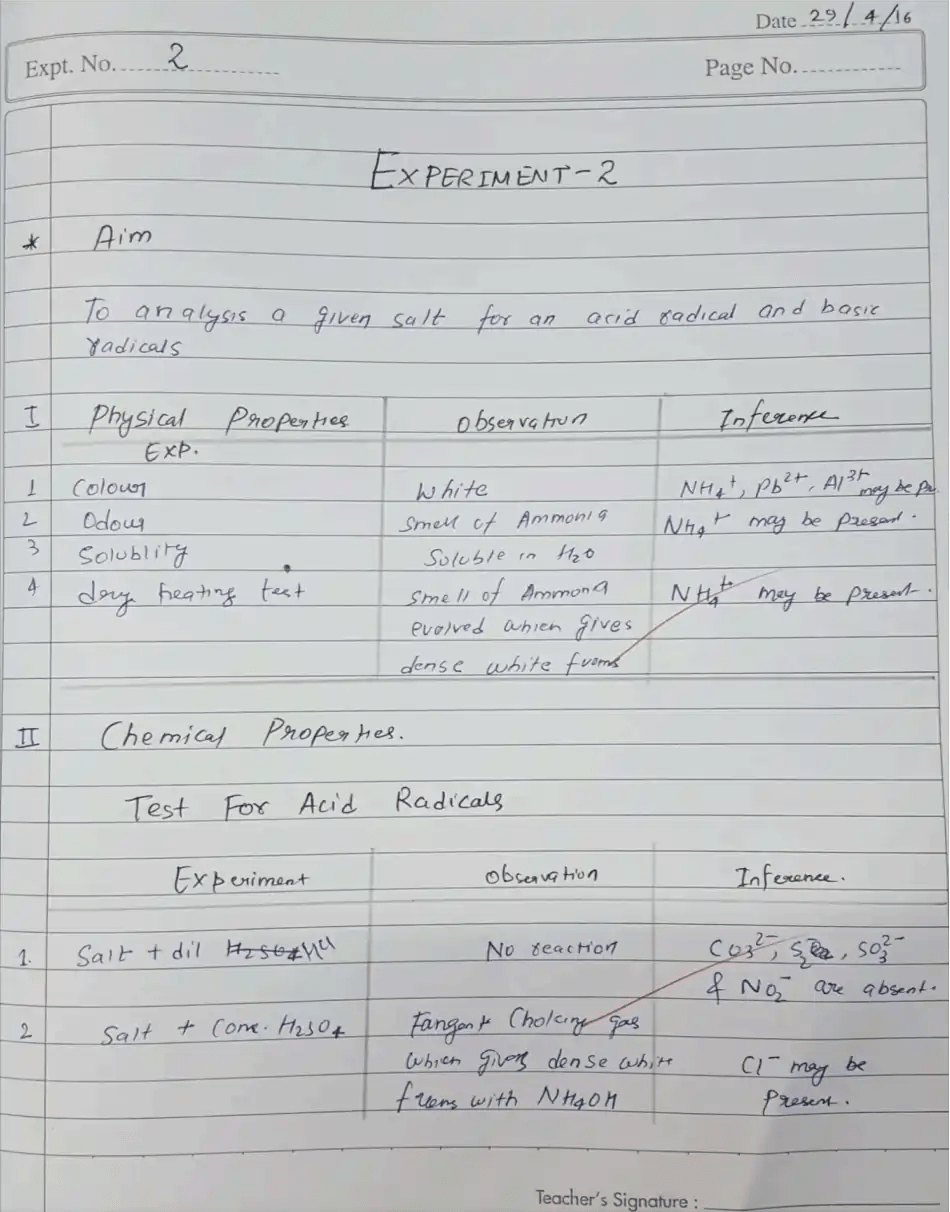 Date 29/4/16
Expt. No. 2 Page No.
EXPERIMENT-2
* Aim
To analysis a given salt for an acid radical and basic
radicals
I Physical Properties Observation Inference
Exp.
1 Colour White NH4+, Pb2+, Al3+ may be
2 Odour Smell of Ammonia NH4+ may be present.
3 Solublity Soluble in H2O
4 dry heating test Smell of Ammona NH4+ may be present.
evolved which gives
dense white fums
II Chemical Properties.
Test For Acid Radicals
Experiment Observation Inference.
1. Salt + dil H2SO4 HCl No reaction CO3 2-, SO3 2-
& NO2- are absent.
2 Salt + Conc. H2SO4 Choking gas
which gives dense white Cl- may be
with NH4OH present.
Teacher's Signature :